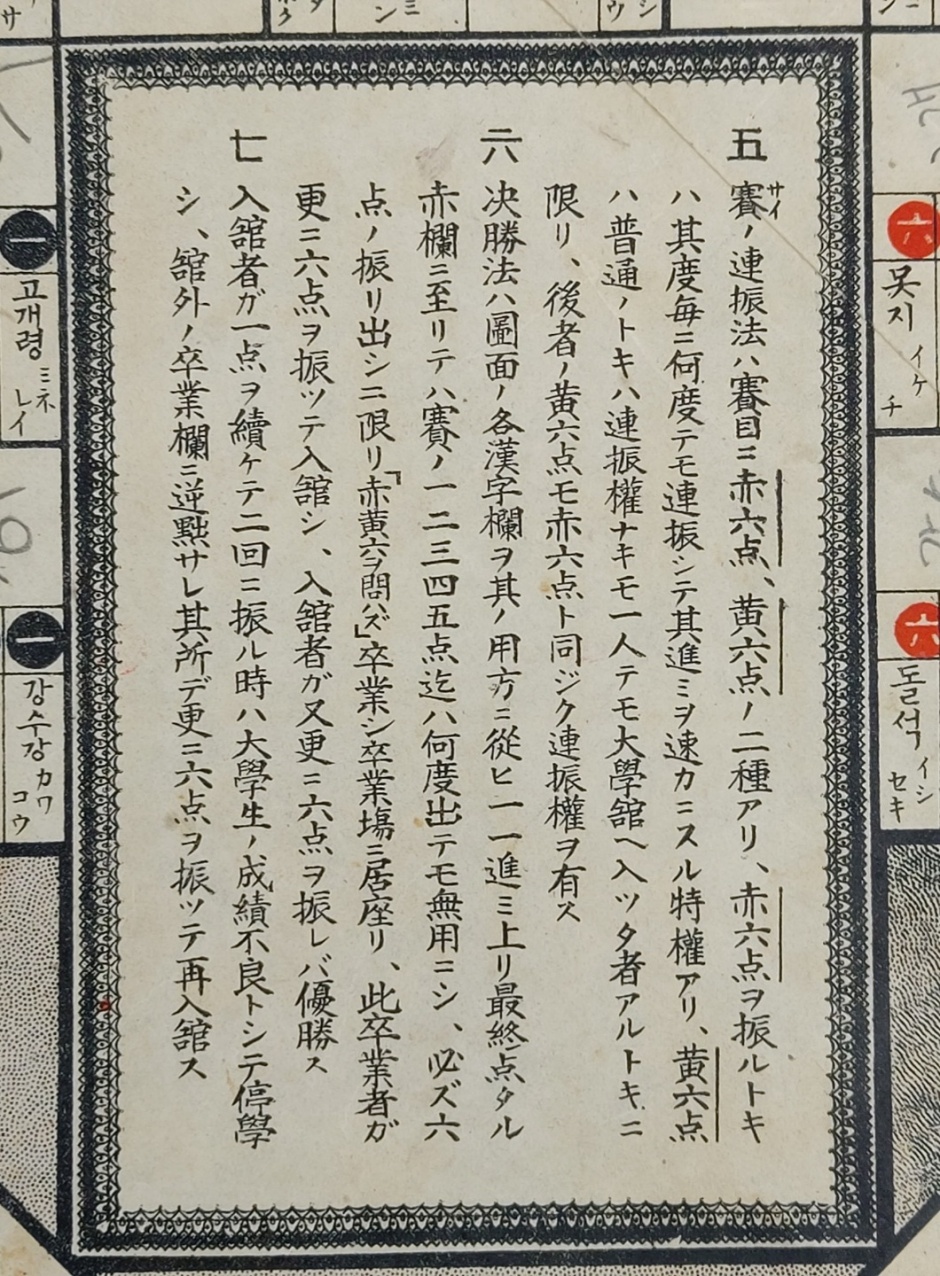 五 賽サイノ連振法ハ賽目ニ赤六点、黄六点ノ二種アリ、赤六点ヲ振ルトキ
ハ其度毎ニ何度テモ連振シテ其進ミヲ速カニスル特權アリ、黄六点
ハ普通ノトキハ連振權ナキモ一人テモ大學舘ヘ入ツタ者アルトキニ
限リ、後者ノ黄六点モ赤六点ト同ジク連振權ヲ有ス
六 决勝法ハ圖面ノ各漢字欄ヲ其ノ用方ニ從ヒ一一進ミ上リ最終点タル
赤欄ニ至リテハ賽ノ一二三四五点迄ハ何度出テモ無用ニシ、必ズ六
点ノ振リ出シニ限リ「赤黄六ヲ問ハズ」卒業シ卒業塲ニ居座リ、此卒業者ガ
更ニ六点ヲ振ツテ入舘シ、入舘者ガ又更ニ六点ヲ振レバ優勝ス
七 入舘者ガ一点ヲ續ケテ二回ニ振ル時ハ大學生ノ成績不良トシテ停學
シ、舘外ノ卒業欄ニ逆點サレ其所デ更ニ六点ヲ振ツテ再入舘ス
六
못지
イケ
チ
六
돌석
イシ
セキ
一
고개령
ミネ
レイ
一
강수강
カワ
コウ